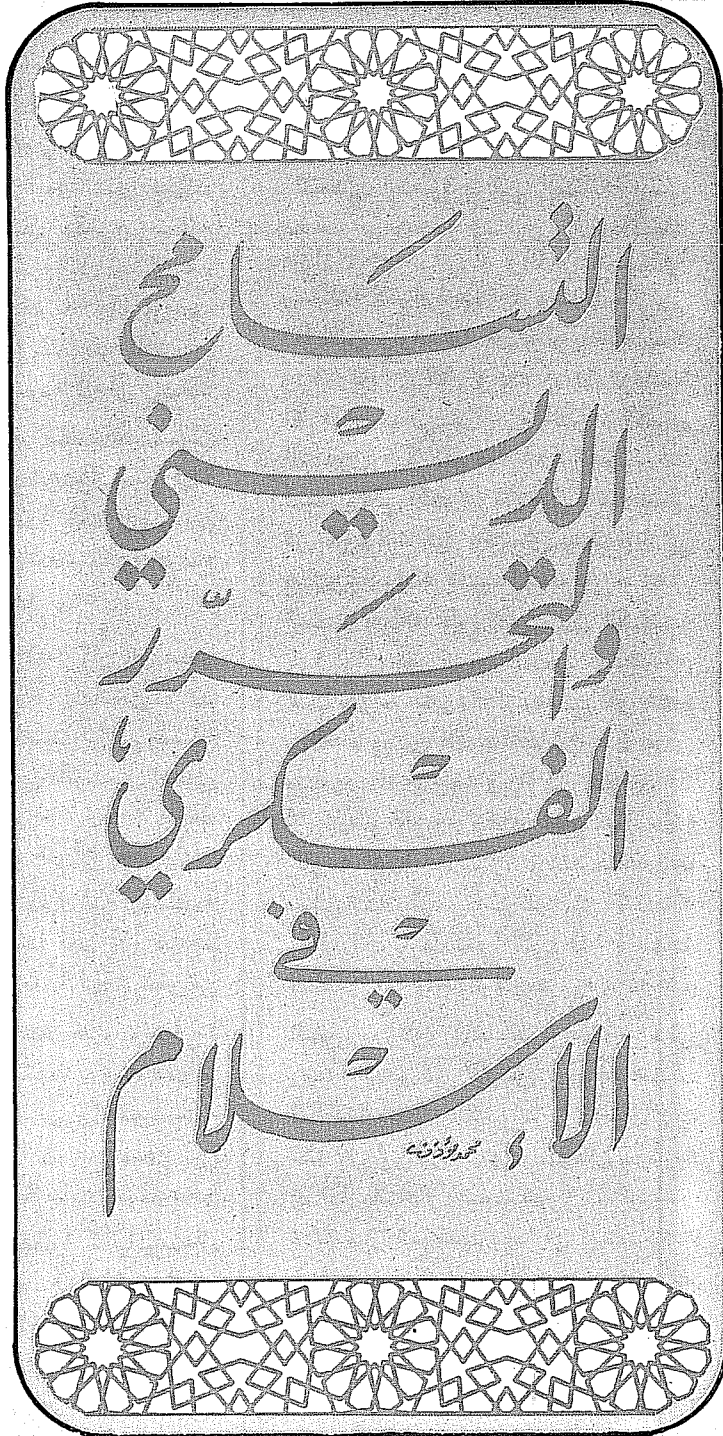 التسَامح
الديني
والتحَرّر
الفكري
في
الإسلام